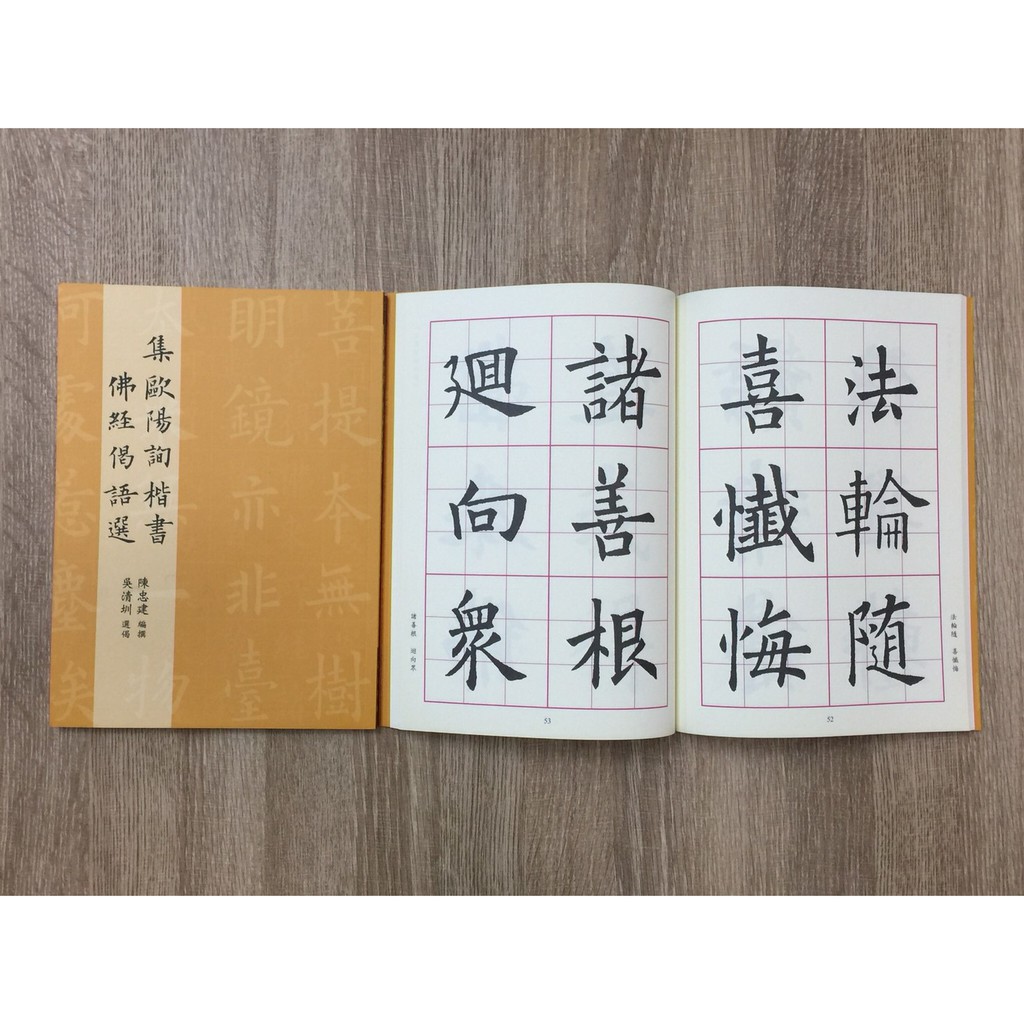 菩提本無樹
明鏡亦非臺
集歐陽詢楷書
佛經偈語選
陳忠建 編撰
吳清圳 選偈
法輪隨
喜懺悔
法輪隨 喜懺悔
52
諸善根
廻向衆
諸善根 廻向眾
53